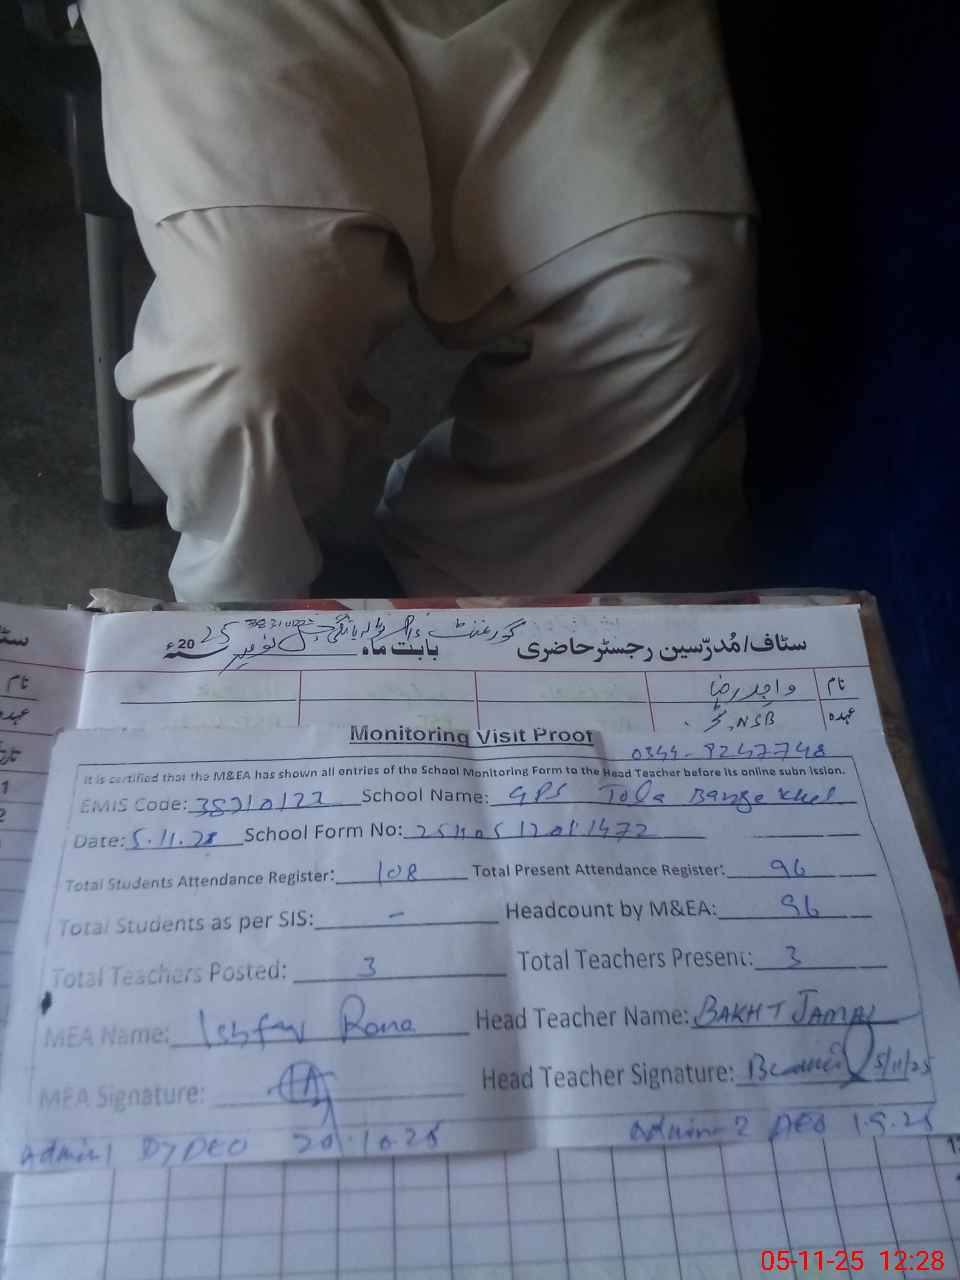 سٹاف/مُدرّسین رجسٹر حاضری گورنمنٹ بابت ماہ نومبر 2025ء
نام واجد رضا
عہدہ NSB
Monitoring Visit Proof
0344-9247748
It is certified that the M&EA has shown all entries of the School Monitoring Form to the Head Teacher before its online submission.
EMIS Code: 38310122 School Name: GPS Tola Bange Khel
Date: 5.11.25 School Form No:
Total Students Attendance Register: 108 Total Present Attendance Register: 96
Total Students as per SIS: - Headcount by M&EA: 96
Total Teachers Posted: 3 Total Teachers Present: 3
MEA Name: Ishfaq Rana Head Teacher Name: BAKHT JAMAL
MEA Signature: Head Teacher Signature: 5/11/25
Admin 1 Dy DEO 20.10.25 Admin-2 AEO 1.9.25
05-11-25 12:28